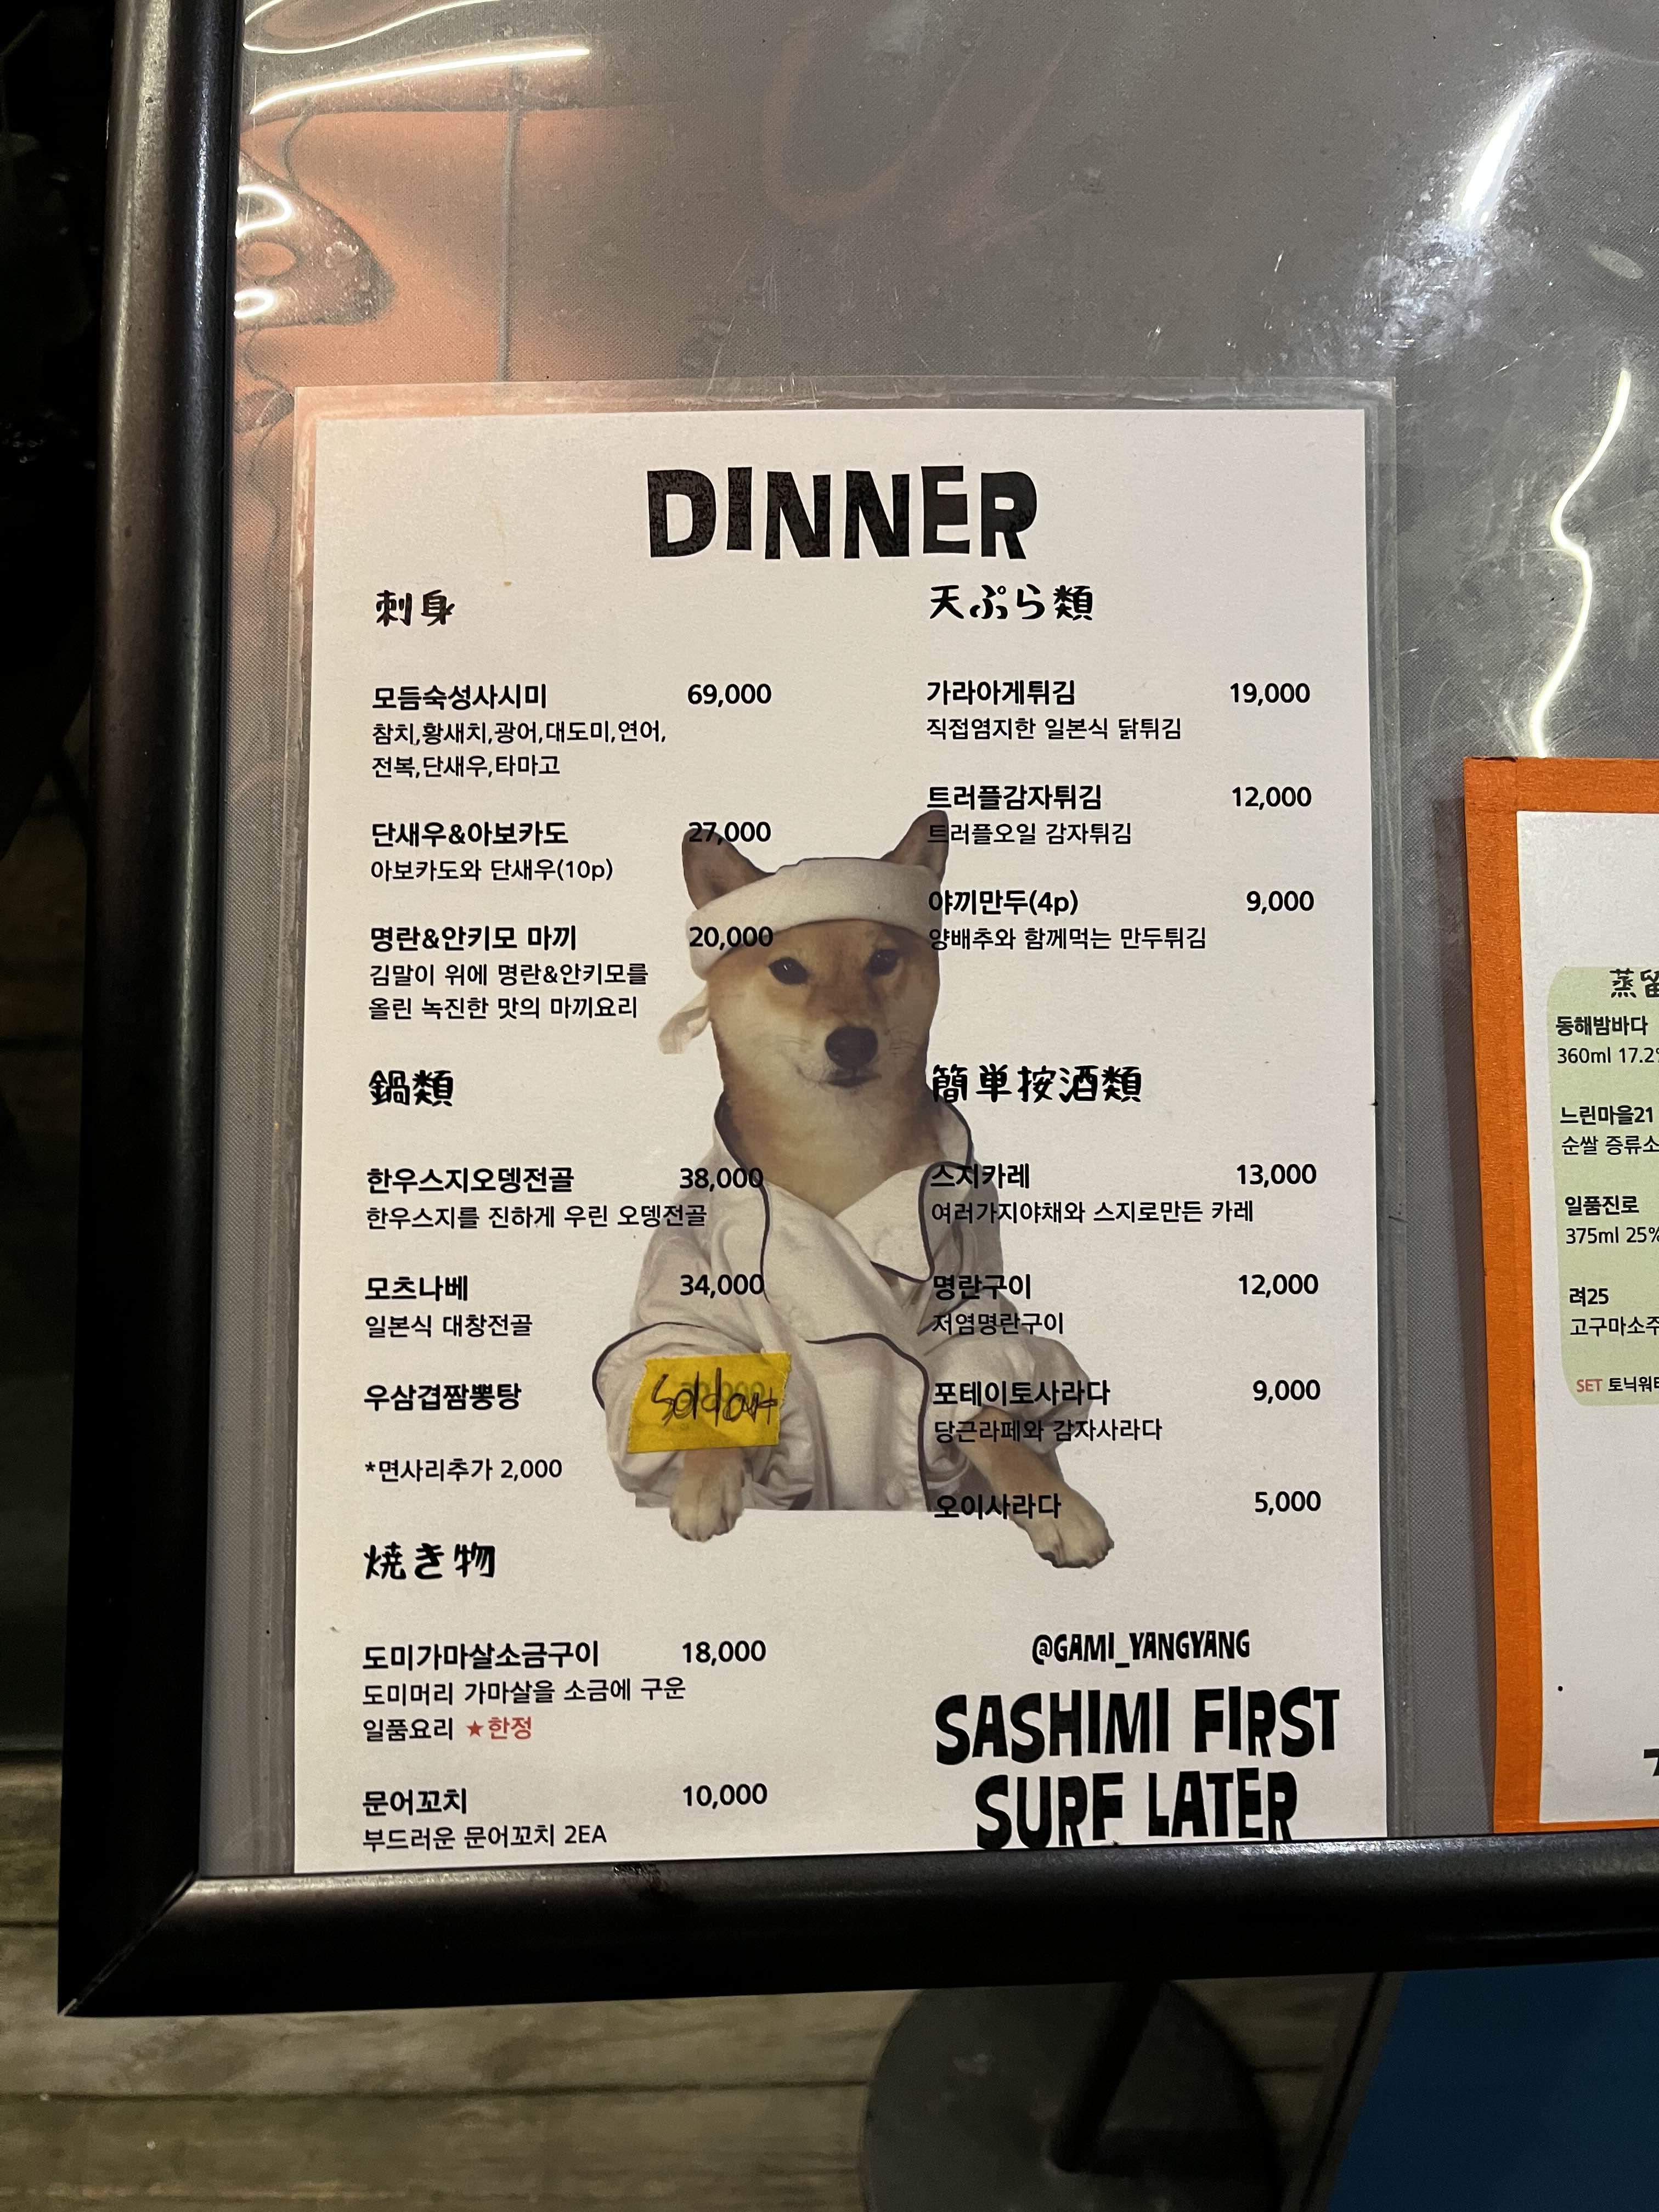 DINNER
刺身
모듬숙성사시미 69,000
참치,황새치,광어,대도미,연어,
전복,단새우,타마고
단새우&아보카도 27,000
아보카도와 단새우(10p)
명란&안키모 마끼 20,000
김말이 위에 명란&안키모를
올린 녹진한 맛의 마끼요리
鍋類
한우스지오뎅전골 38,000
한우스지를 진하게 우린 오뎅전골
모츠나베 34,000
일본식 대창전골
우삼겹짬뽕탕 Soldout
*면사리추가 2,000
焼き物
도미가마살소금구이 18,000
도미머리 가마살을 소금에 구운
일품요리 ★한정
문어꼬치 10,000
부드러운 문어꼬치 2EA
天ぷら類
가라아게튀김 19,000
직접염지한 일본식 닭튀김
트러플감자튀김 12,000
트러플오일 감자튀김
야끼만두(4p) 9,000
양배추와 함께먹는 만두튀김
簡単按酒類
스지카레 13,000
여러가지야채와 스지로만든 카레
명란구이 12,000
저염명란구이
포테이토사라다 9,000
당근라페와 감자사라다
오이사라다 5,000
@GAMI_YANGYANG
SASHIMI FIRST
SURF LATER
동해밤바다
360ml
느린마을21
순쌀
일품진로
375ml 25%
려25
SET